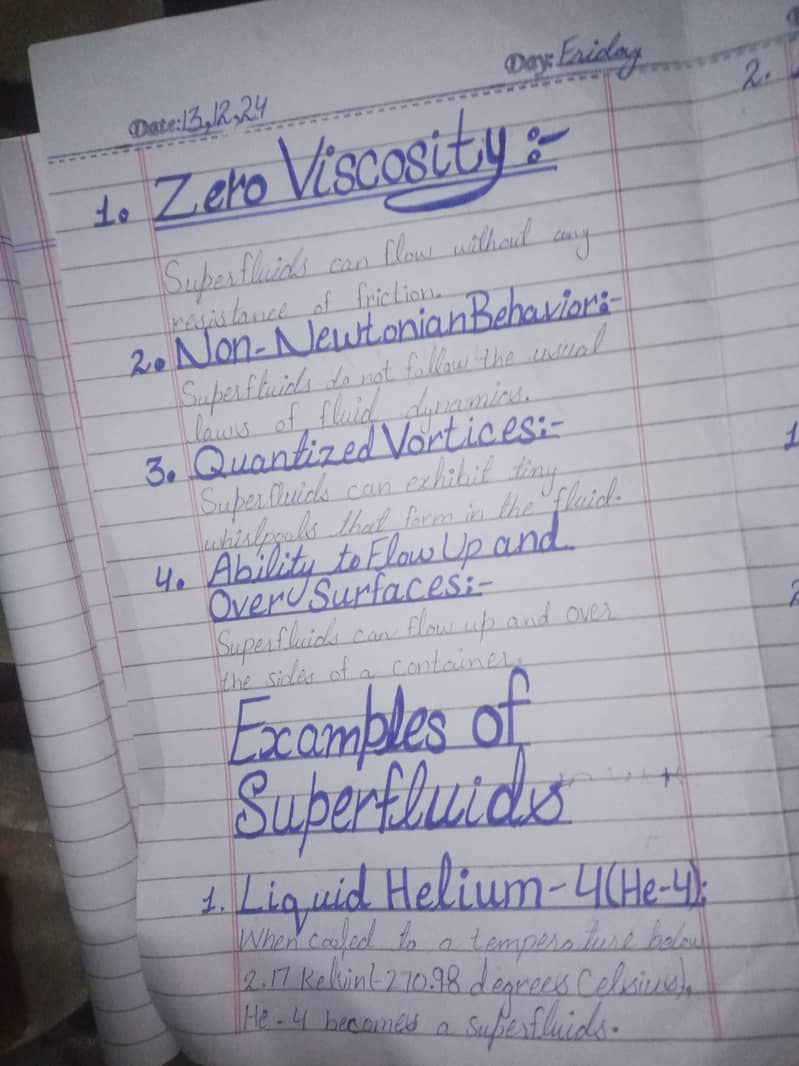 Date: 13,12,24
Day: Friday
1. Zero Viscosity :-
Superfluids can flow without any
resistance of friction.
2. Non-Newtonian Behavior:-
Superfluids do not follow the usual
laws of fluid dynamics.
3. Quantized Vortices:-
Superfluids can exhibit tiny
whirlpools that form in the fluid.
4. Ability to Flow Up and
Over Surfaces:-
Superfluids can flow up and over
the sides of a container.
Examples of
Superfluids
1. Liquid Helium-4(He-4):
When cooled to a temperature below
2.17 Kelvin(-270.98 degrees Celsius),
He-4 becomes a superfluids.
2.
1
2